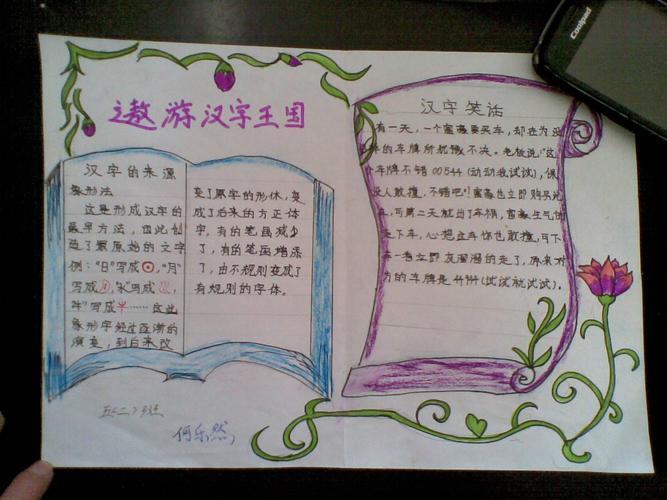 遨游汉字王国
汉字的来源
象形法
这是形成汉字的
最早方法，由此创
造了最原始的文字
例："日"写成，"月"
写成，"水"写成，
"牛"写成……这些
象形字经过逐渐的
演变，到后来改
变了原字的形体，变
成了后来的方正体
字，有的笔画减少
了，有的笔画增添
了，由不规则变成了
有规则的字体。
汉字笑话
有一天，一个富豪要买车，却在为没
的车牌所犹豫不决。老板说："这
车牌不错00544(动动我试试)，保
没人敢撞，不错吧！富豪也立即购买
，可第二天就出了车祸，富豪生气的
走下车，心想这车你也敢撞，可下
车一看立即灰溜溜的走了，原来对
方的车牌是44944(试试就试试)。
五(二)班
何乐然
Coolpad